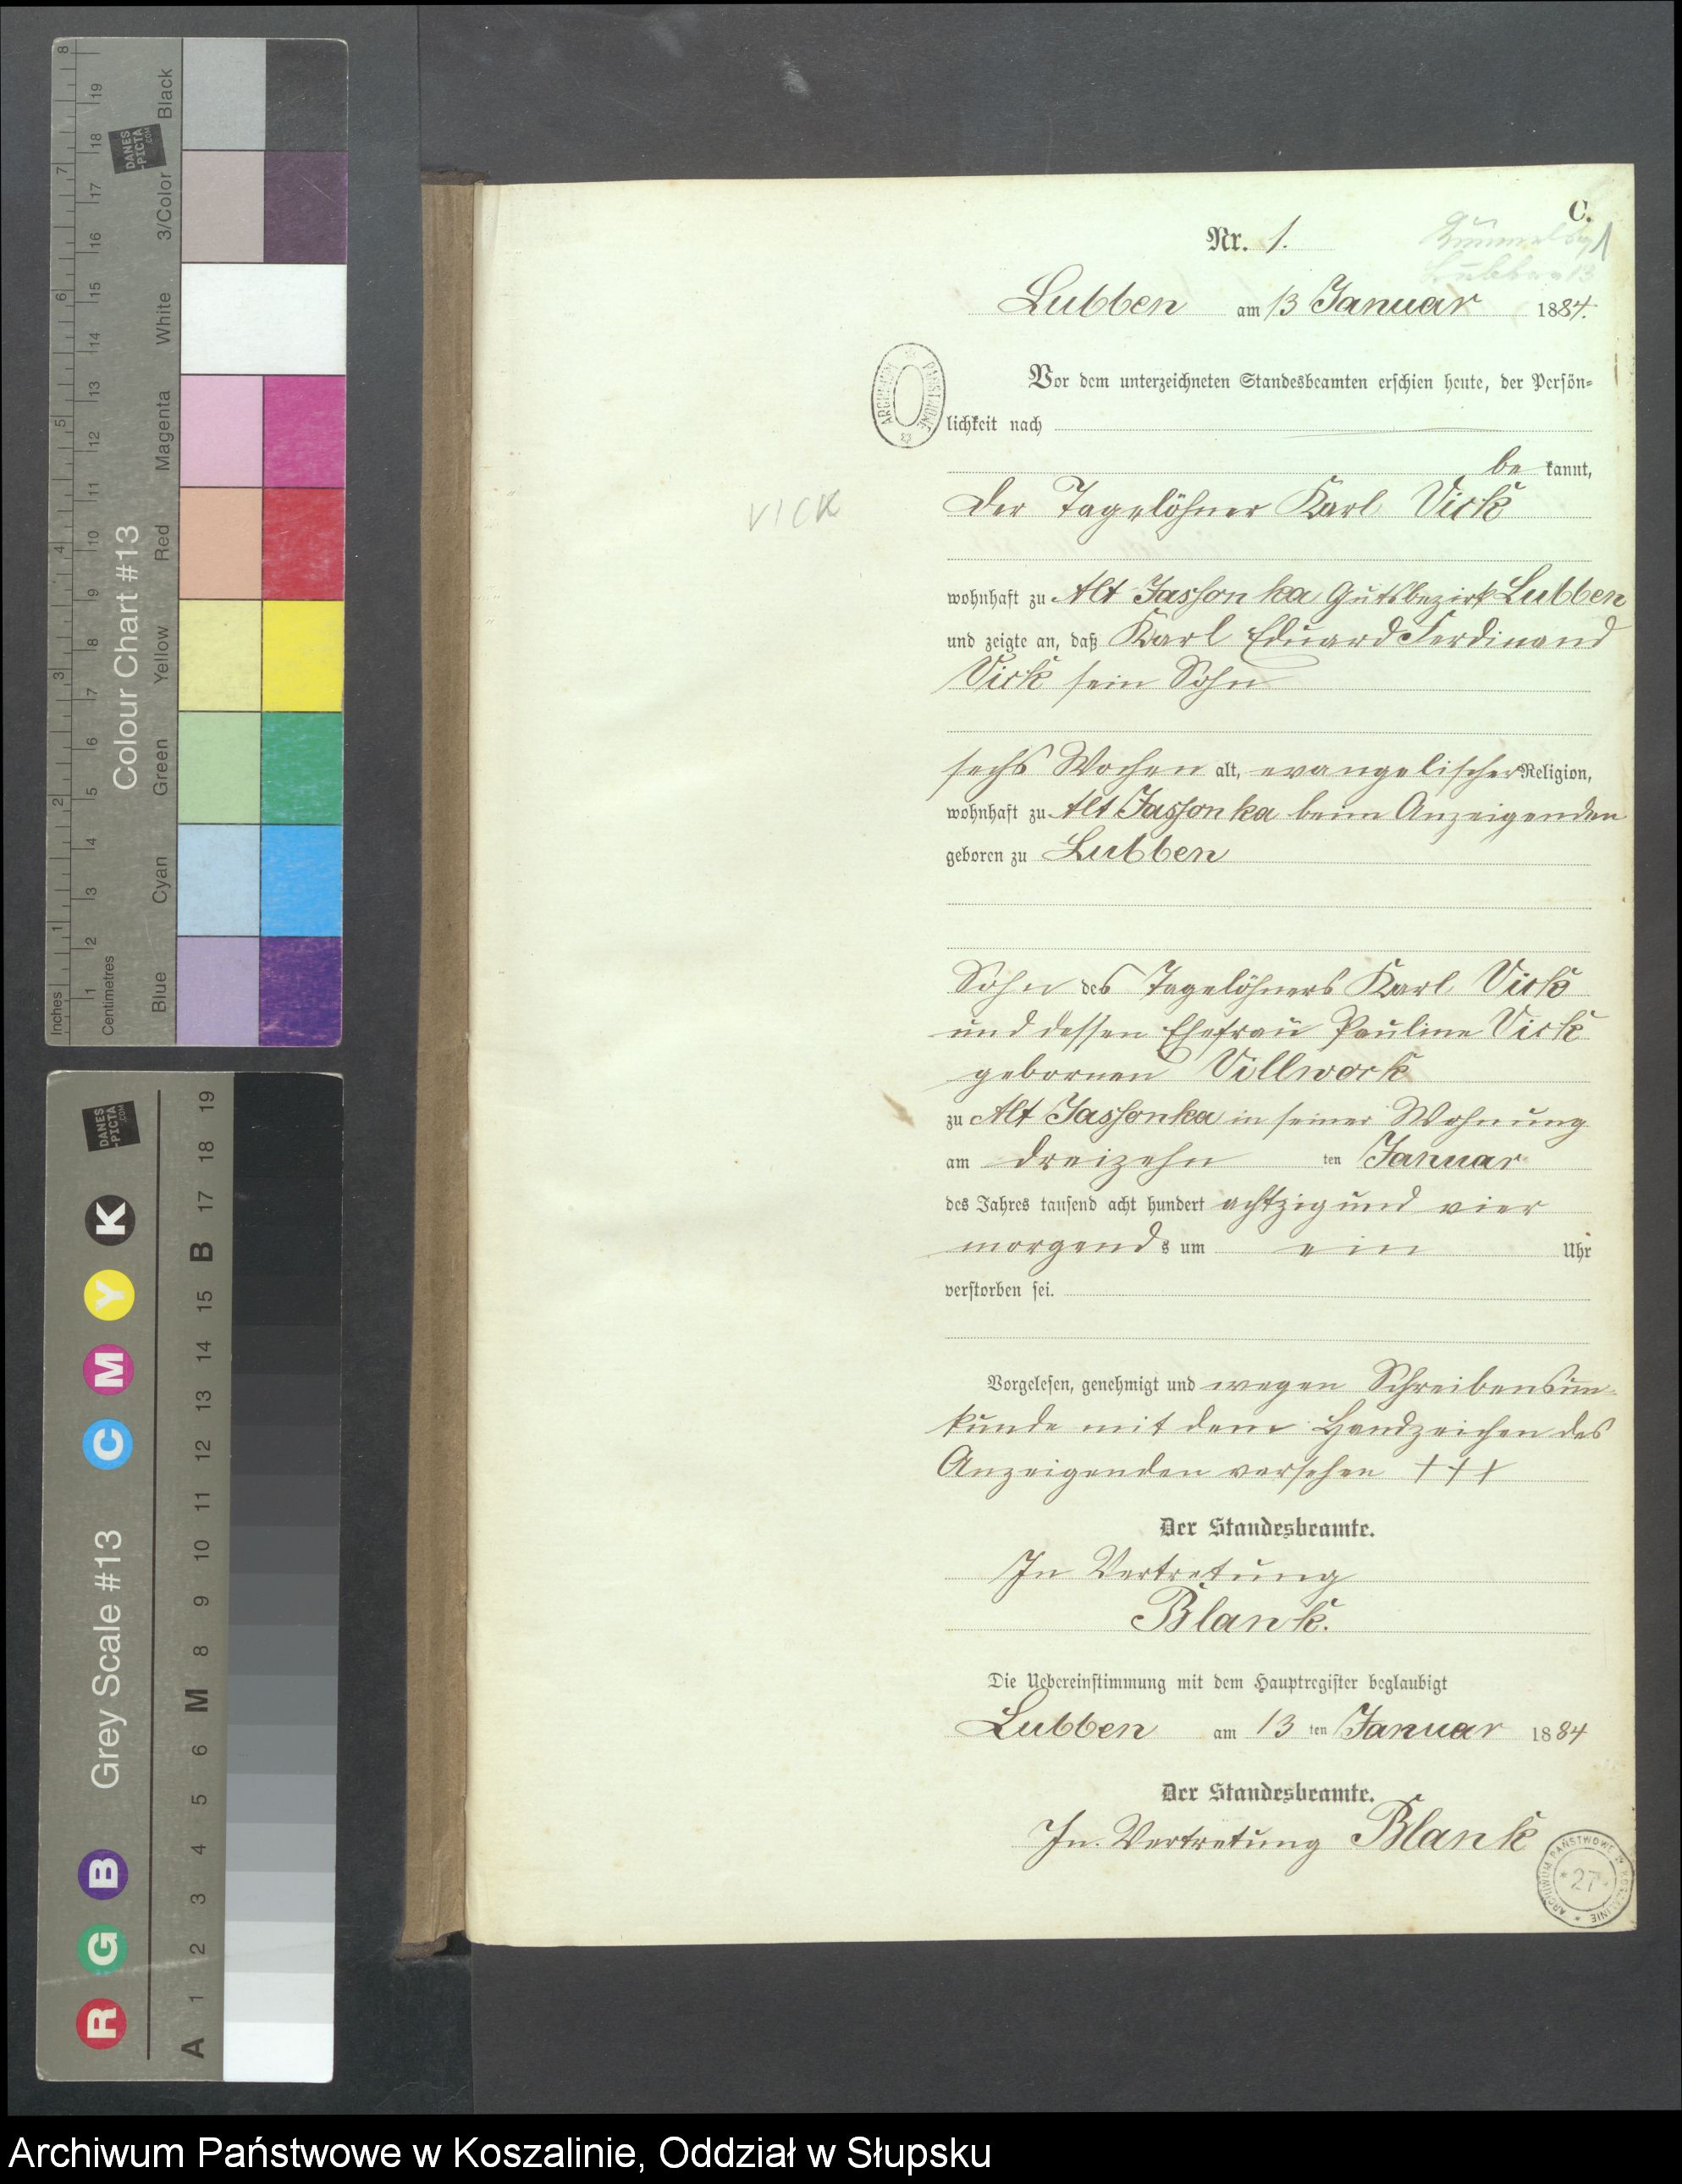 C.
Nr. 1.
1
Lubben am 13 Januar 1884.
Vor dem unterzeichneten Standesbeamten erschien heute, der Persön-
lichkeit nach
be kannt,
VICK
der Tagelöhner Karl Vick
wohnhaft zu Alt Jassonka Gutsbezirk Lubben
und zeigte an, daß Karl Eduard Ferdinand
Vick sein Sohn
sechs Wochen alt, evangelischer Religion,
wohnhaft zu Alt Jassonka beim Anzeigenden
geboren zu Lubben
Sohn des Tagelöhners Karl Vick
und dessen Ehefrau Pauline Vick
gebornen Villwock
zu Alt Jassonka in seiner Wohnung
am dreizehn ten Januar
des Jahres tausend acht hundert achtzig und vier
morgends um ein Uhr
verstorben sei.
Vorgelesen, genehmigt und wegen Schreibensun-
kunde mit dem Handzeichen des
Anzeigenden versehen +++
Der Standesbeamte.
In Vertretung
Blank.
Die Uebereinstimmung mit dem Hauptregister beglaubigt
Lubben am 13 ten Januar 1884
Der Standesbeamte.
In Vertretung Blank
ARCHIWUM PAŃSTWOWE
ARCHIWUM PAŃSTWOWE W KOSZALINIE
* 27 *
Colour Chart #13
Inches 1 2 3 4 5 6 7 8
Centimetres 1 2 3 4 5 6 7 8 9 10 11 12 13 14 15 16 17 18 19
Blue Cyan Green Yellow Red Magenta White 3/Color Black
DANES
-PICTA
.COM
Grey Scale #13
R G B C M Y K
A 1 2 3 4 5 6 M 8 9 10 11 12 13 14 15 B 17 18 19
DANES
-PICTA
.COM
Archiwum Państwowe w Koszalinie, Oddział w Słupsku